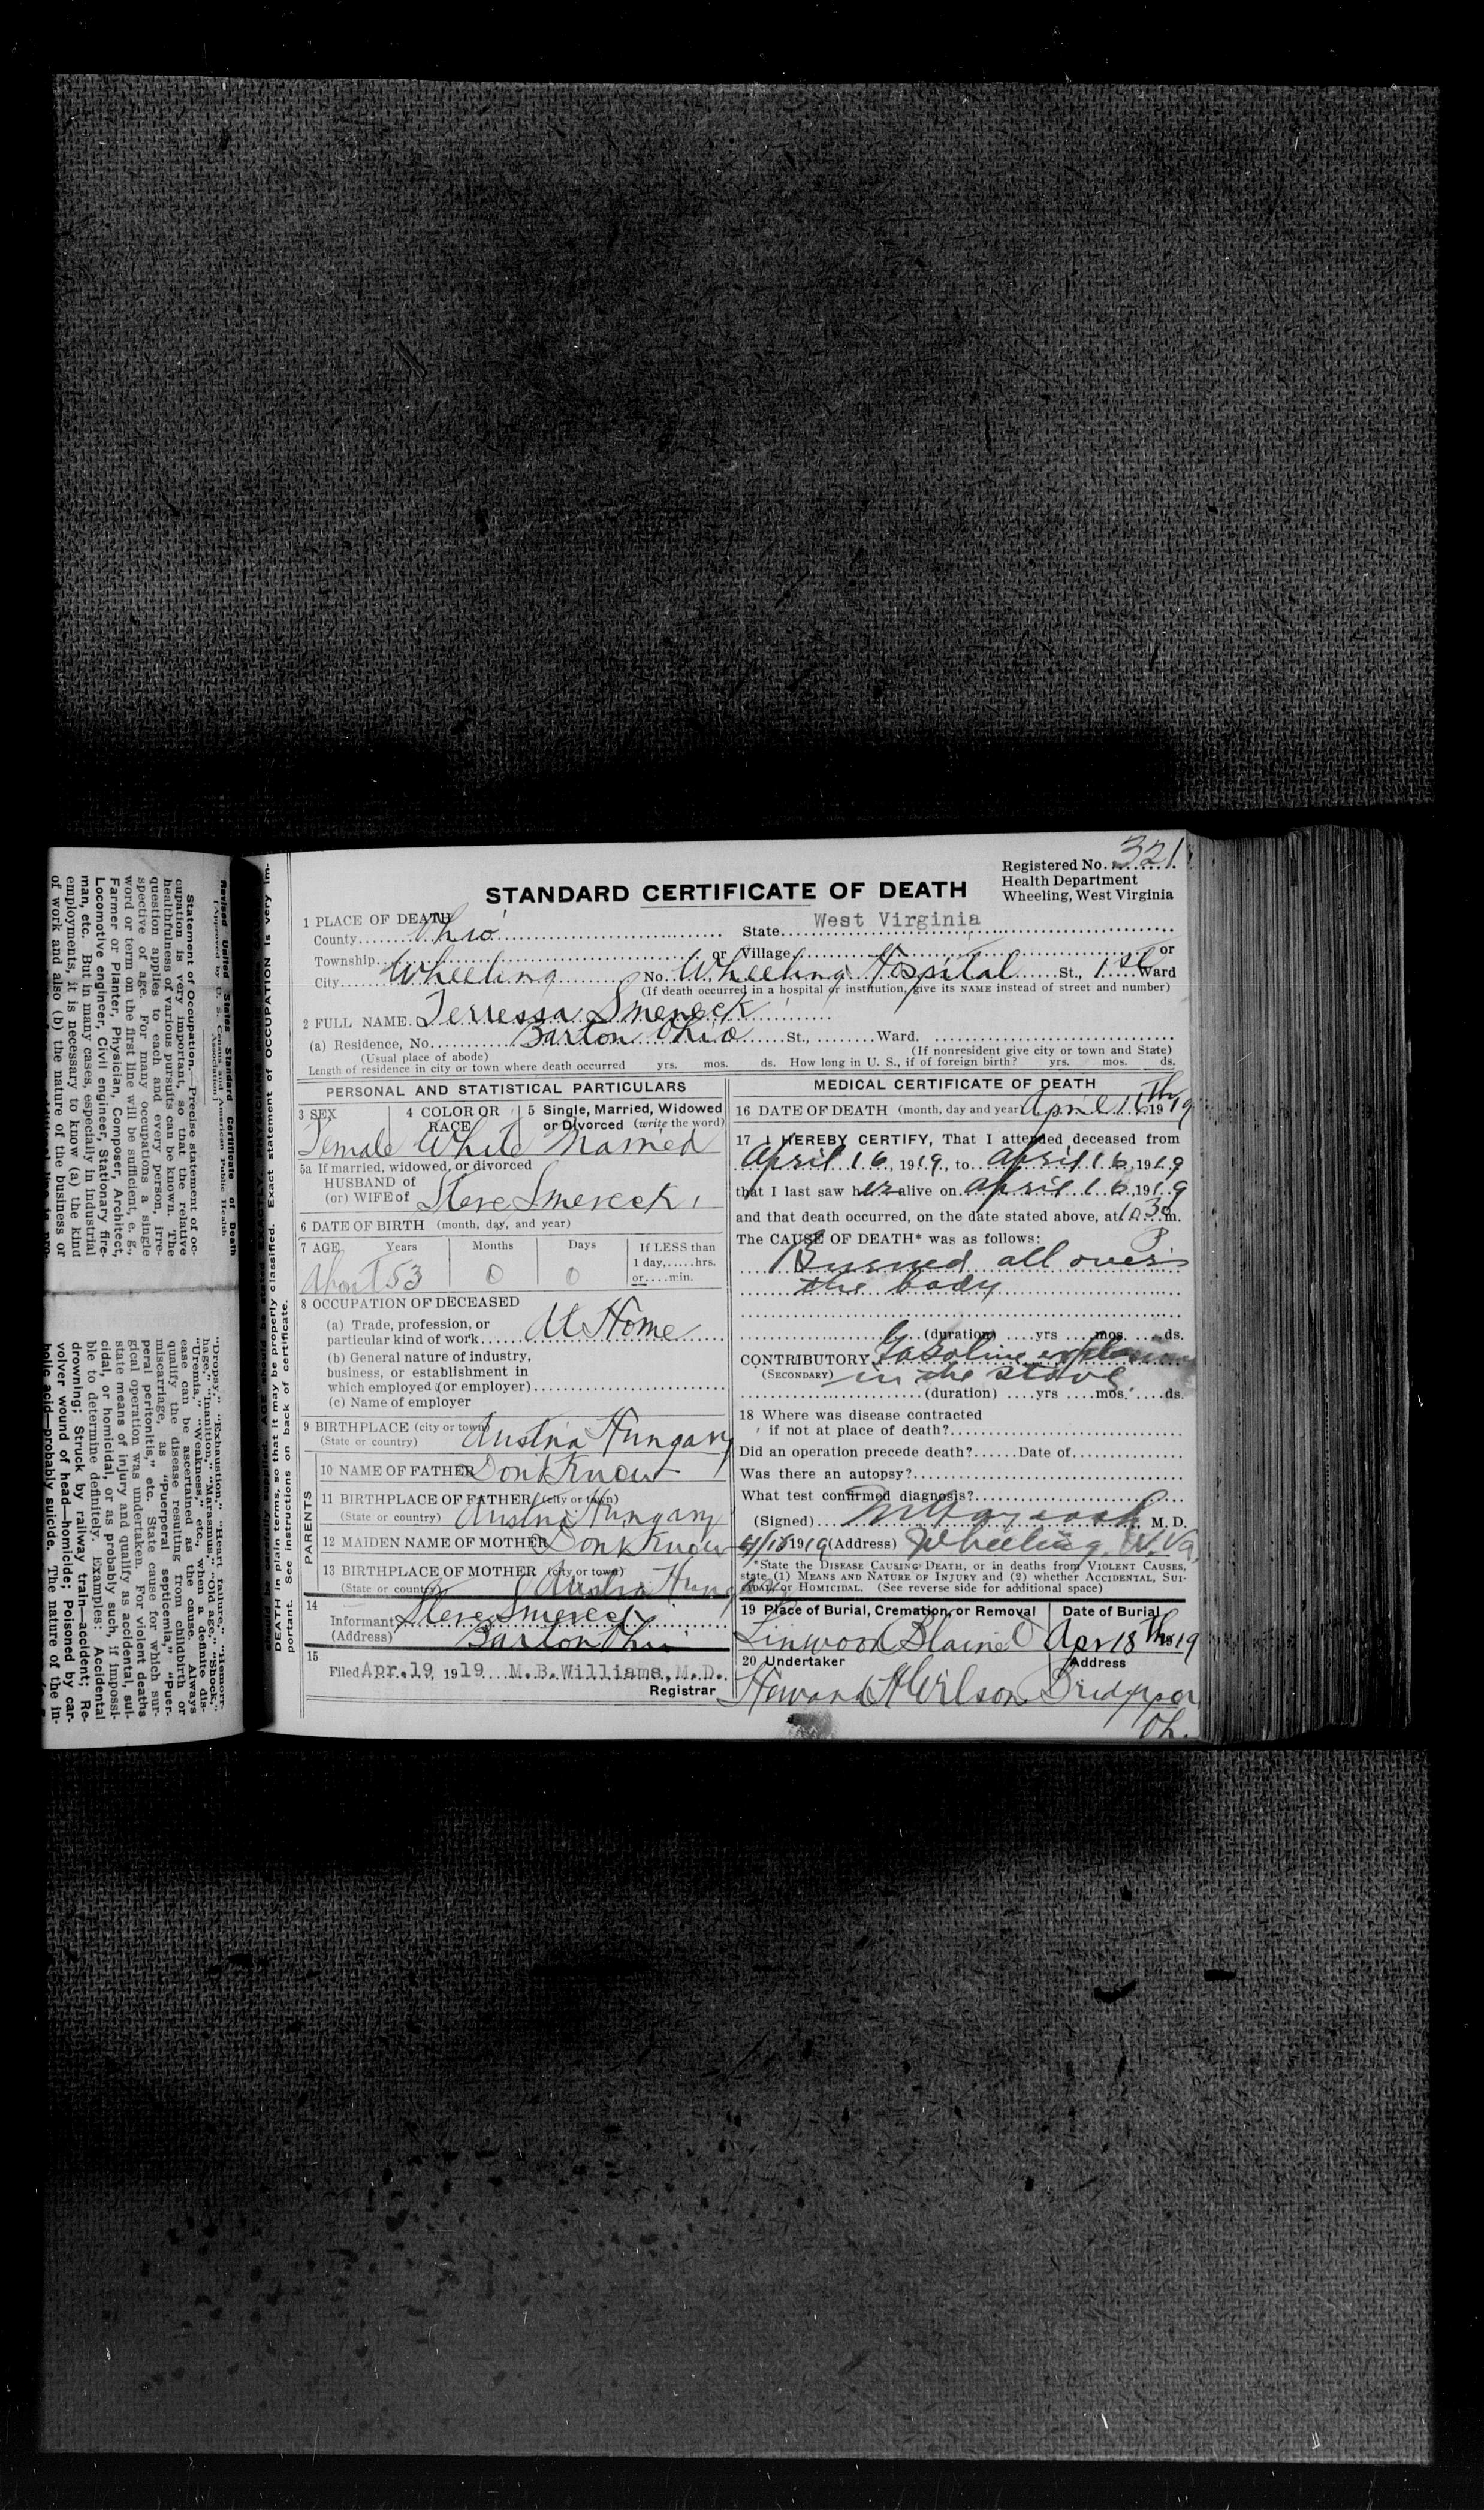 Registered No. 321
Health Department
Wheeling, West Virginia
STANDARD CERTIFICATE OF DEATH
1 PLACE OF DEATH
County Ohio State West Virginia
Township or Village or
City Wheeling No. Wheeling Hospital St., 1st Ward
(If death occurred in a hospital or institution, give its NAME instead of street and number)
2 FULL NAME Terressa Smereck
(a) Residence, No. Barton Ohio St., Ward.
(Usual place of abode) (If nonresident give city or town and State)
Length of residence in city or town where death occurred yrs. mos. ds. How long in U. S., if of foreign birth? yrs. mos. ds.
PERSONAL AND STATISTICAL PARTICULARS
3 SEX 4 COLOR OR RACE 5 Single, Married, Widowed or Divorced (write the word)
Female White Married
5a If married, widowed, or divorced
HUSBAND of
(or) WIFE of Steve Smereck
6 DATE OF BIRTH (month, day, and year)
7 AGE Years Months Days If LESS than
1 day, hrs.
or min.
About 53 0 0
8 OCCUPATION OF DECEASED
(a) Trade, profession, or
particular kind of work At Home
(b) General nature of industry,
business, or establishment in
which employed (or employer)
(c) Name of employer
9 BIRTHPLACE (city or town)
(State or country) Austria Hungary
PARENTS
10 NAME OF FATHER Dont Know
11 BIRTHPLACE OF FATHER (city or town)
(State or country) Austria Hungary
12 MAIDEN NAME OF MOTHER Dont Know
13 BIRTHPLACE OF MOTHER (city or town)
(State or country) Austria Hungary
14
Informant Steve Smereck
(Address) Barton Ohio
15
Filed Apr. 19 1919 M. B. Williams, M.D.
Registrar
MEDICAL CERTIFICATE OF DEATH
16 DATE OF DEATH (month, day and year) April 16th 1919
17 I HEREBY CERTIFY, That I attended deceased from
April 16, 1919, to April 16, 1919
that I last saw her alive on April 16, 1919
and that death occurred, on the date stated above, at 10 30 P m.
The CAUSE OF DEATH* was as follows:
Burned all over
the body
(duration) yrs mos. ds.
CONTRIBUTORY Gasoline explosion
(SECONDARY) in the stove
(duration) yrs mos. ds.
18 Where was disease contracted
if not at place of death?
Did an operation precede death? Date of
Was there an autopsy?
What test confirmed diagnosis?
(Signed) M. D.
4/18 1919 (Address) Wheeling W. Va.
*State the DISEASE CAUSING DEATH, or in deaths from VIOLENT CAUSES,
state (1) MEANS AND NATURE OF INJURY and (2) whether ACCIDENTAL, SUI-
CIDAL, or HOMICIDAL. (See reverse side for additional space)
19 Place of Burial, Cremation, or Removal Date of Burial
Linwood Blaine O Apr 18th 1919
20 Undertaker Address
Howard H Wilson Bridgeport
Oh.
DEATH in plain terms, so that it may be properly classified. Exact statement of OCCUPATION is very im-
portant. See instructions on back of certificate.
Revised United States Standard Certificate of Death
[Approved by U. S. Census and American Public Health
Association]
Statement of Occupation.—Precise statement of oc-
cupation is very important, so that the relative
healthfulness of various pursuits can be known. The
question applies to each and every person, irre-
spective of age. For many occupations a single
word or term on the first line will be sufficient, e. g.,
Farmer or Planter, Physician, Composer, Architect,
Locomotive engineer, Civil engineer, Stationary fire-
man, etc. But in many cases, especially in industrial
employments, it is necessary to know (a) the kind
of work and also (b) the nature of the business or
"Dropsy," "Exhaustion," "Heart failure," "Hemorr-
hage," "Inanition," "Marasmus," "Old age," "Shock,"
"Uremia," "Weakness," etc., when a definite dis-
ease can be ascertained as the cause. Always
qualify the disease resulting from childbirth or
miscarriage, as "Puerperal septicemia," "Puer-
peral peritonitis," etc. State cause for which sur-
gical operation was undertaken. For violent deaths
state means of injury and qualify as accidental, sui-
cidal, or homicidal, or as probably such, if impossi-
ble to determine definitely. Examples: Accidental
drowning; Struck by railway train—accident; Re-
volver wound of head—homicide; Poisoned by car-
bolic acid—probably suicide. The nature of the in-